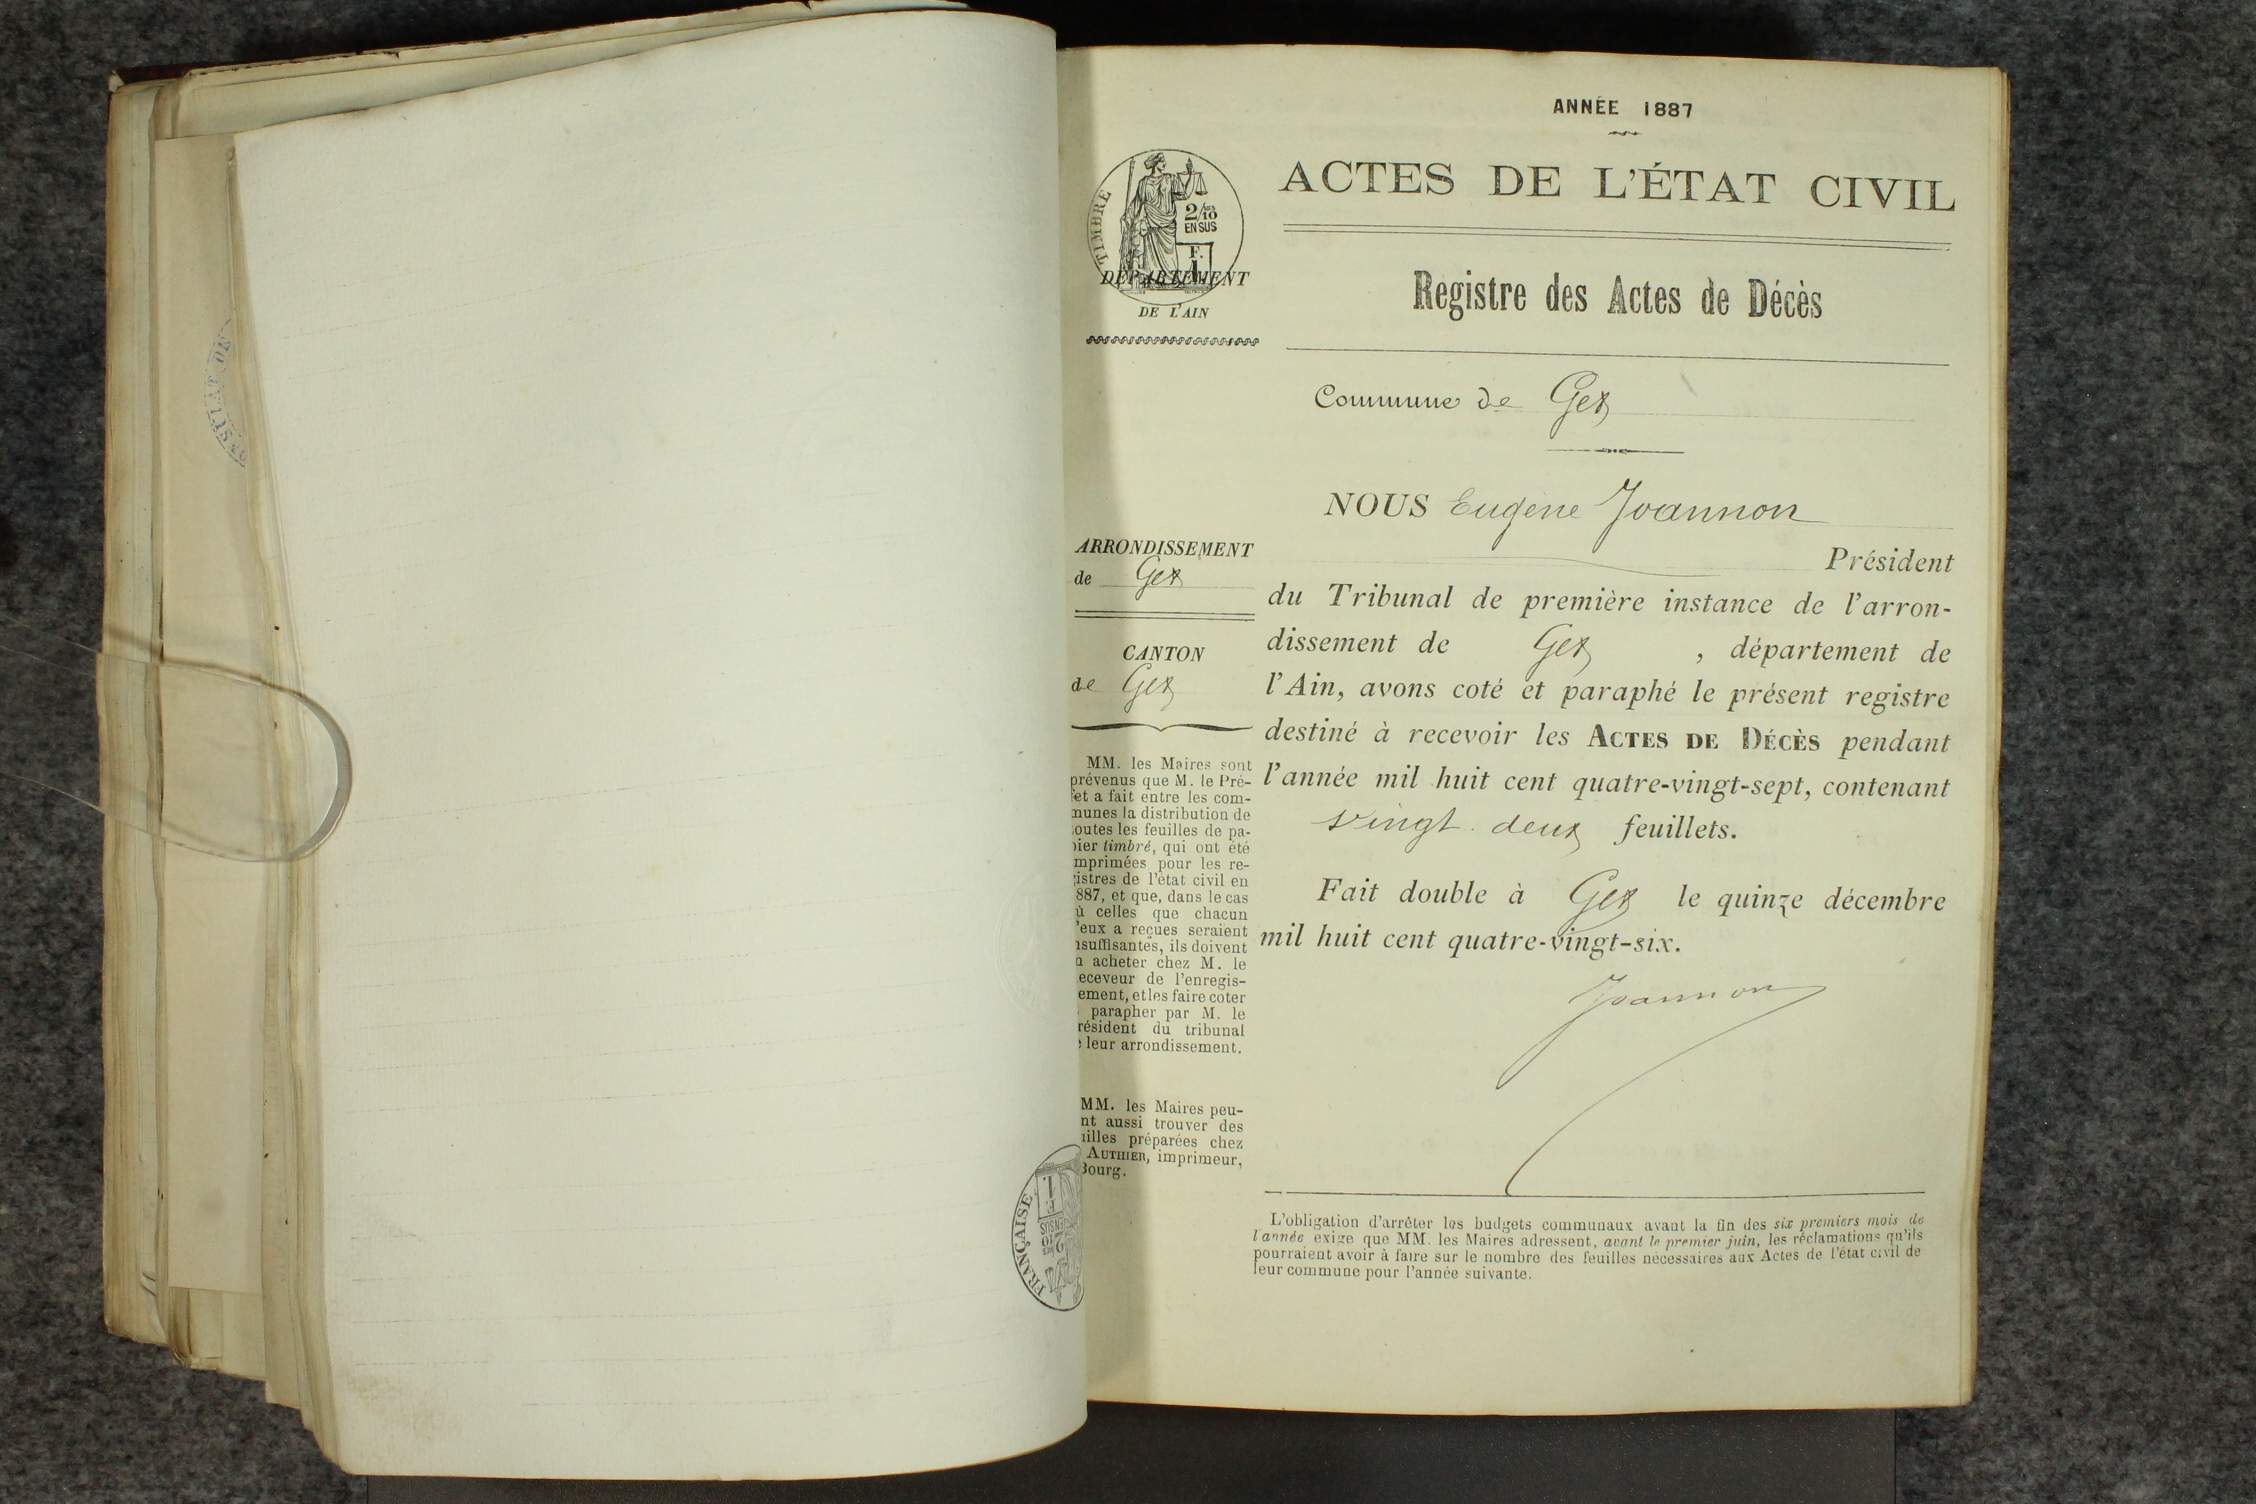 ANNÉE 1887
ACTES DE L'ÉTAT CIVIL
TIMBRE
2/10
EN SUS
F.
1
DÉPARTEMENT
DE L'AIN
Registre des Actes de Décès
Commune de Gex
NOUS Eugène Joannon
Président
du Tribunal de première instance de l'arron-
dissement de Gex, département de
l'Ain, avons coté et paraphé le présent registre
destiné à recevoir les ACTES DE DÉCÈS pendant
l'année mil huit cent quatre-vingt-sept, contenant
vingt deux feuillets.
Fait double à Gex le quinze décembre
mil huit cent quatre-vingt-six.
Joannon
ARRONDISSEMENT
de Gex
CANTON
de Gex
MM. les Maires sont
prévenus que M. le Pré-
fet a fait entre les com-
munes la distribution de
toutes les feuilles de pa-
pier timbré, qui ont été
imprimées pour les re-
gistres de l'état civil en
887, et que, dans le cas
ù celles que chacun
'eux a reçues seraient
nsuffisantes, ils doivent
n acheter chez M. le
eceveur de l'enregis-
ement, et les faire coter
parapher par M. le
résident du tribunal
e leur arrondissement.
MM. les Maires peu-
nt aussi trouver des
uilles préparées chez
AUTHIER, imprimeur,
Bourg.
FRANÇAISE
2/10
EN SUS
F.
1
L'obligation d'arrêter les budgets communaux avant la fin des six premiers mois de
l'année exige que MM. les Maires adressent, avant le premier juin, les réclamations qu'ils
pourraient avoir à faire sur le nombre des feuilles nécessaires aux Actes de l'état civil de
leur commune pour l'année suivante.